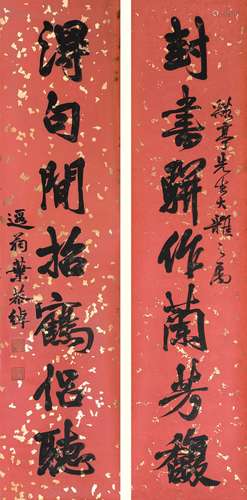 亭先生大雅之屬
封書騈作蘭芳馥
得句閒招鶴侶聽
遐翁葉恭綽